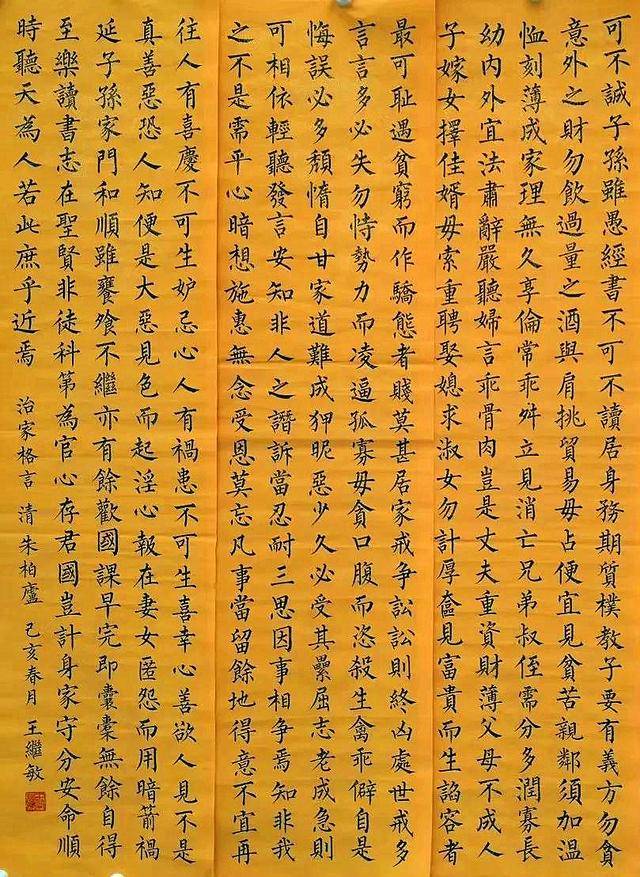 可不誠子孫雖愚經書不可不讀居身務期質樸教子要有義方勿貪
意外之財勿飲過量之酒與肩挑貿易毋占便宜見貧苦親鄰須加温
恤刻薄成家理無久享倫常乖舛立見消亡兄弟叔侄需分多潤寡長
幼内外宜法肅辭嚴聽婦言乖骨肉豈是丈夫重資財薄父母不成人
子嫁女擇佳婿毋索重聘娶媳求淑女勿計厚奩見富貴而生諂容者
最可耻遇貧窮而作驕態者賤莫甚居家戒争訟訟則終凶處世戒多
言言多必失勿恃勢力而凌逼孤寡毋貪口腹而恣殺生禽乖僻自是
悔誤必多頹惰自甘家道難成狎昵惡少久必受其纍屈志老成急則
可相依輕聽發言安知非人之譖訴當忍耐三思因事相争焉知非我
之不是需平心暗想施惠無念受恩莫忘凡事當留餘地得意不宜再
往人有喜慶不可生妒忌心人有禍患不可生喜幸心善欲人見不是
真善惡恐人知便是大惡見色而起淫心報在妻女匿怨而用暗箭禍
延子孫家門和順雖饔飧不繼亦有餘歡國課早完即囊橐無餘自得
至樂讀書志在聖賢非徒科第為官心存君國豈計身家守分安命順
時聽天為人若此庶乎近焉 治家格言 清 朱柏廬 己亥春月 王繼敏